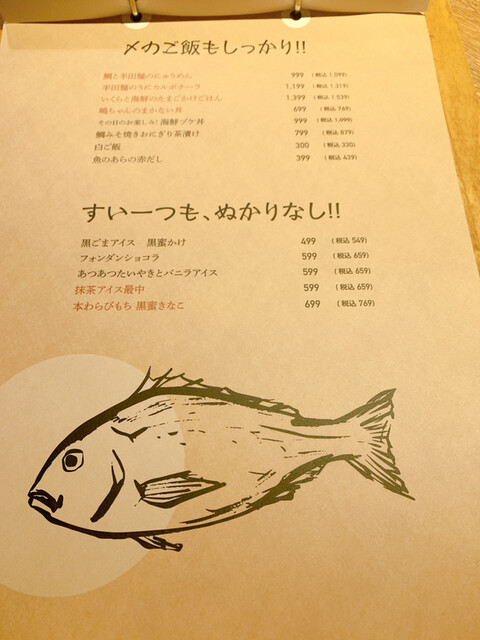 〆のご飯もしっかり!!
鯛と半田麺のにゅうめん 999 (税込 1,099)
半田麺のうにカルボナーラ 1,199 (税込 1,319)
いくらと海鮮のたまごかけごはん 1,399 (税込 1,539)
鳴ちゃんのまかない丼 699 (税込 769)
その日のお楽しみ! 海鮮ヅケ丼 999 (税込 1,099)
鯛みそ焼きおにぎり茶漬け 799 (税込 879)
白ご飯 300 (税込 330)
魚のあらの赤だし 399 (税込 439)
すいーつも、ぬかりなし!!
黒ごまアイス 黒蜜かけ 499 (税込 549)
フォンダンショコラ 599 (税込 659)
あつあつたいやきとバニラアイス 599 (税込 659)
抹茶アイス最中 599 (税込 659)
本わらびもち 黒蜜きなこ 699 (税込 769)